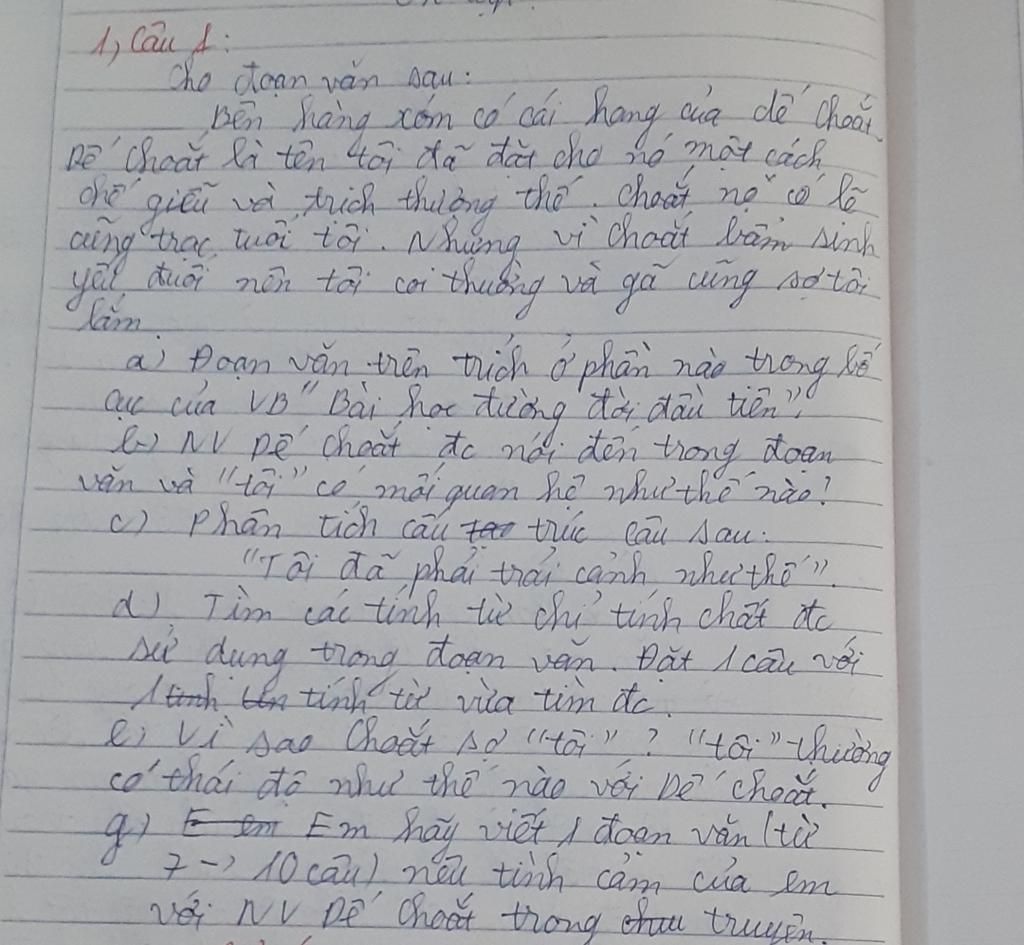 1, Câu 1:
Cho đoạn văn sau:
Bên hàng xóm có cái hang của dế Choắt.
Dế Choắt là tên tôi đã đặt cho nó một cách
chế giễu và trịch thượng thế. Choắt nọ có lẽ
cũng trạc tuổi tôi. Nhưng vì Choắt bẩm sinh
yếu đuối nên tôi coi thường và gã cũng sợ tôi
lắm
a) Đoạn văn trên trích ở phần nào trong bố
cục của VB "Bài học đường đời đầu tiên"?
b) NV Dế Choắt đc nói đến trong đoạn
văn và "tôi" có mối quan hệ như thế nào?
c) Phân tích cấu trúc câu sau:
"Tôi đã phải trải cảnh như thế".
d) Tìm các tính từ chỉ tính chất đc
sử dụng trong đoạn văn. Đặt 1 câu với
1 tính từ vừa tìm đc.
e) Vì sao Choắt sợ "tôi"? "tôi" thường
có thái độ như thế nào với Dế Choắt.
g) Em hãy viết 1 đoạn văn (từ
7 -> 10 câu) nêu tình cảm của em
với NV Dế Choắt trong truyện.